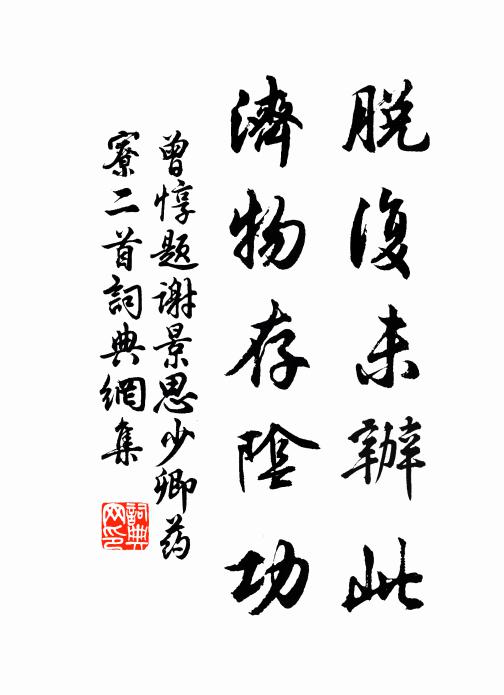 脱復未辦此
濟物存陰功
曾惇题谢景思少卿药
寮二首詞典網集
詞典
网印